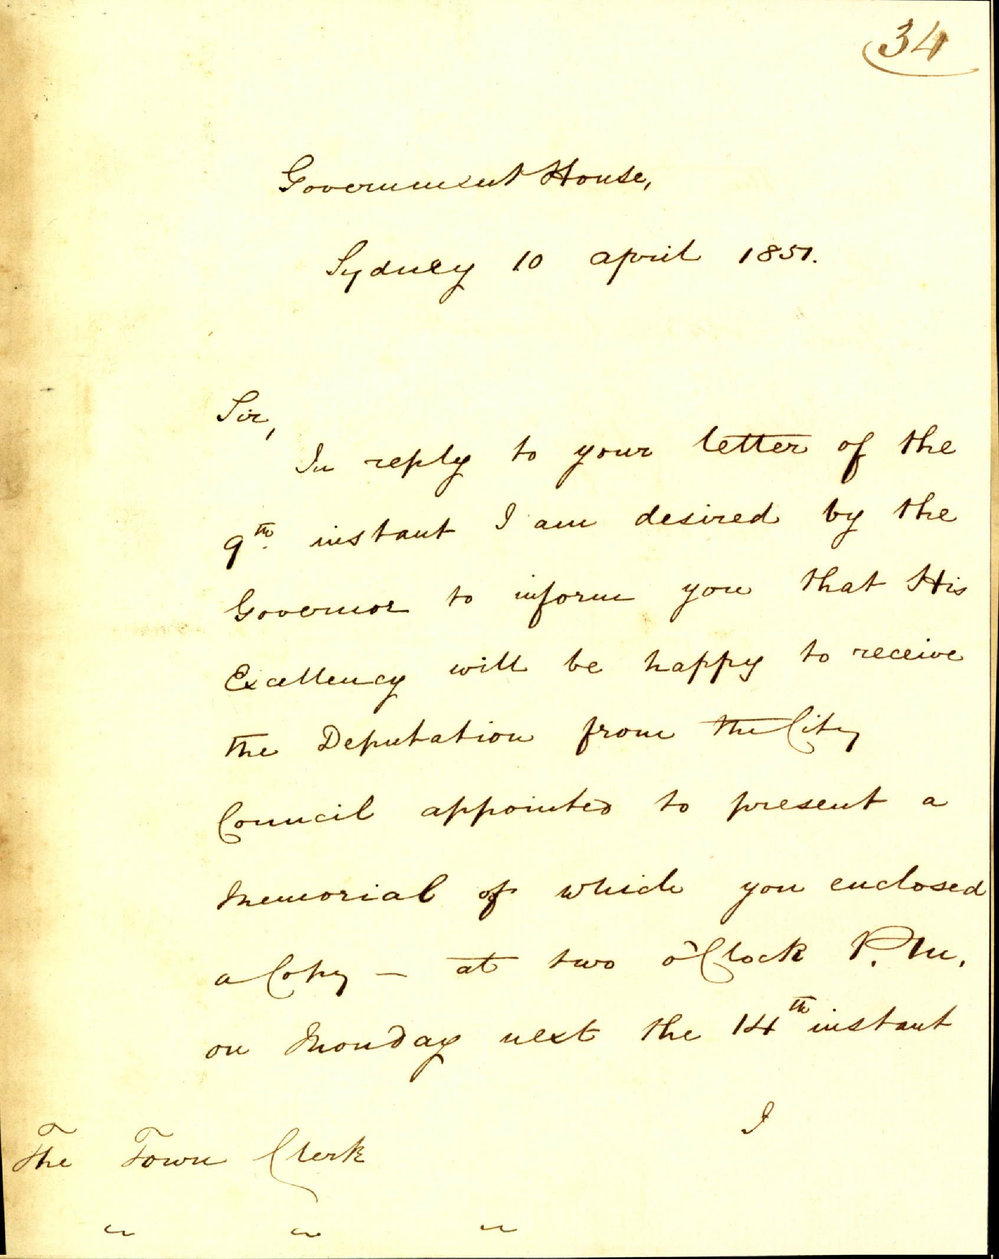 34
Government House,
Sydney 10 april 1851.
Sir,
In reply to your letter of the
9th. instant I am desired by the
Governor to inform you that His
Excellency will be happy to receive
the Deputation from the City
Council appointed to present a
Memorial of which you enclosed
a Copy — at two o'Clock P.M.
on Monday next the 14th instant
I
The Town Clerk
" " "